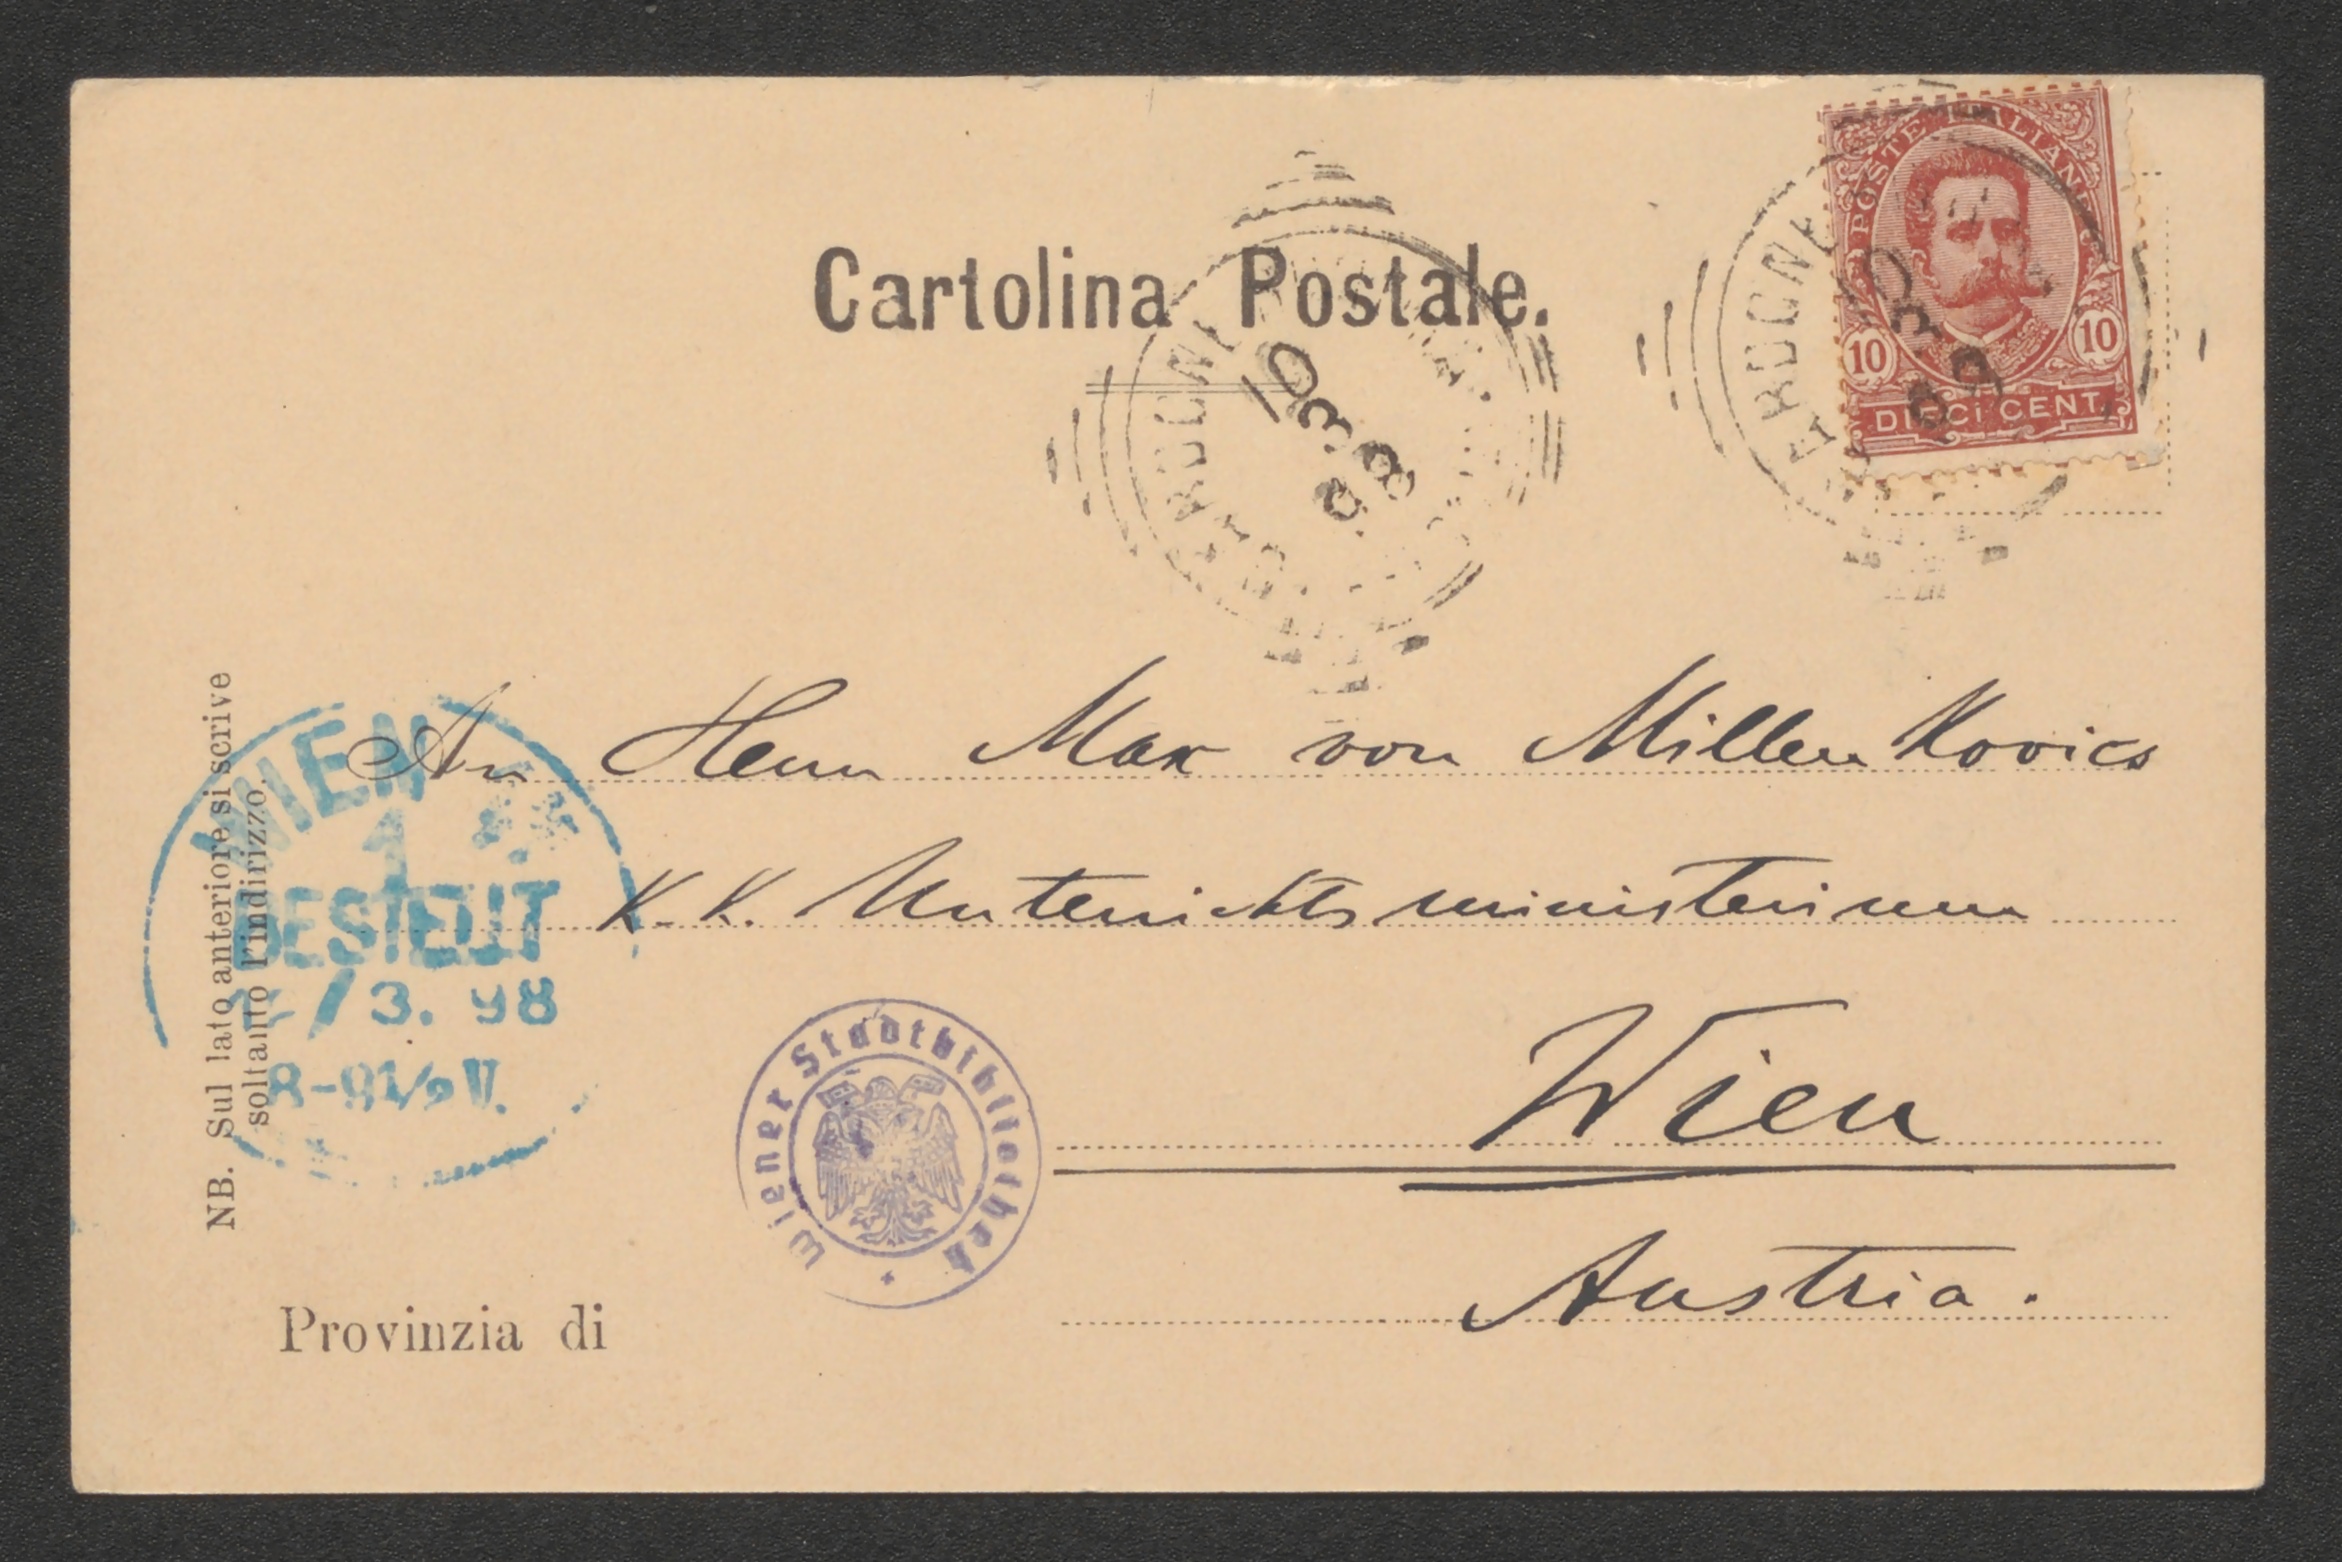 Cartolina Postale.
POSTE ITALIANE
10 10
DIECI CENT.
10 3 98
10 3 98
An Herrn Max von Millenkovics
K. K. Unterrichtsministerium
Wien
Austria.
WIEN
1
BESTELLT
3. 98
8-9½ V.
NB. Sul lato anteriore si scrive
soltanto l'indirizzo.
Wiener Stadtbibliothek
Provinzia di